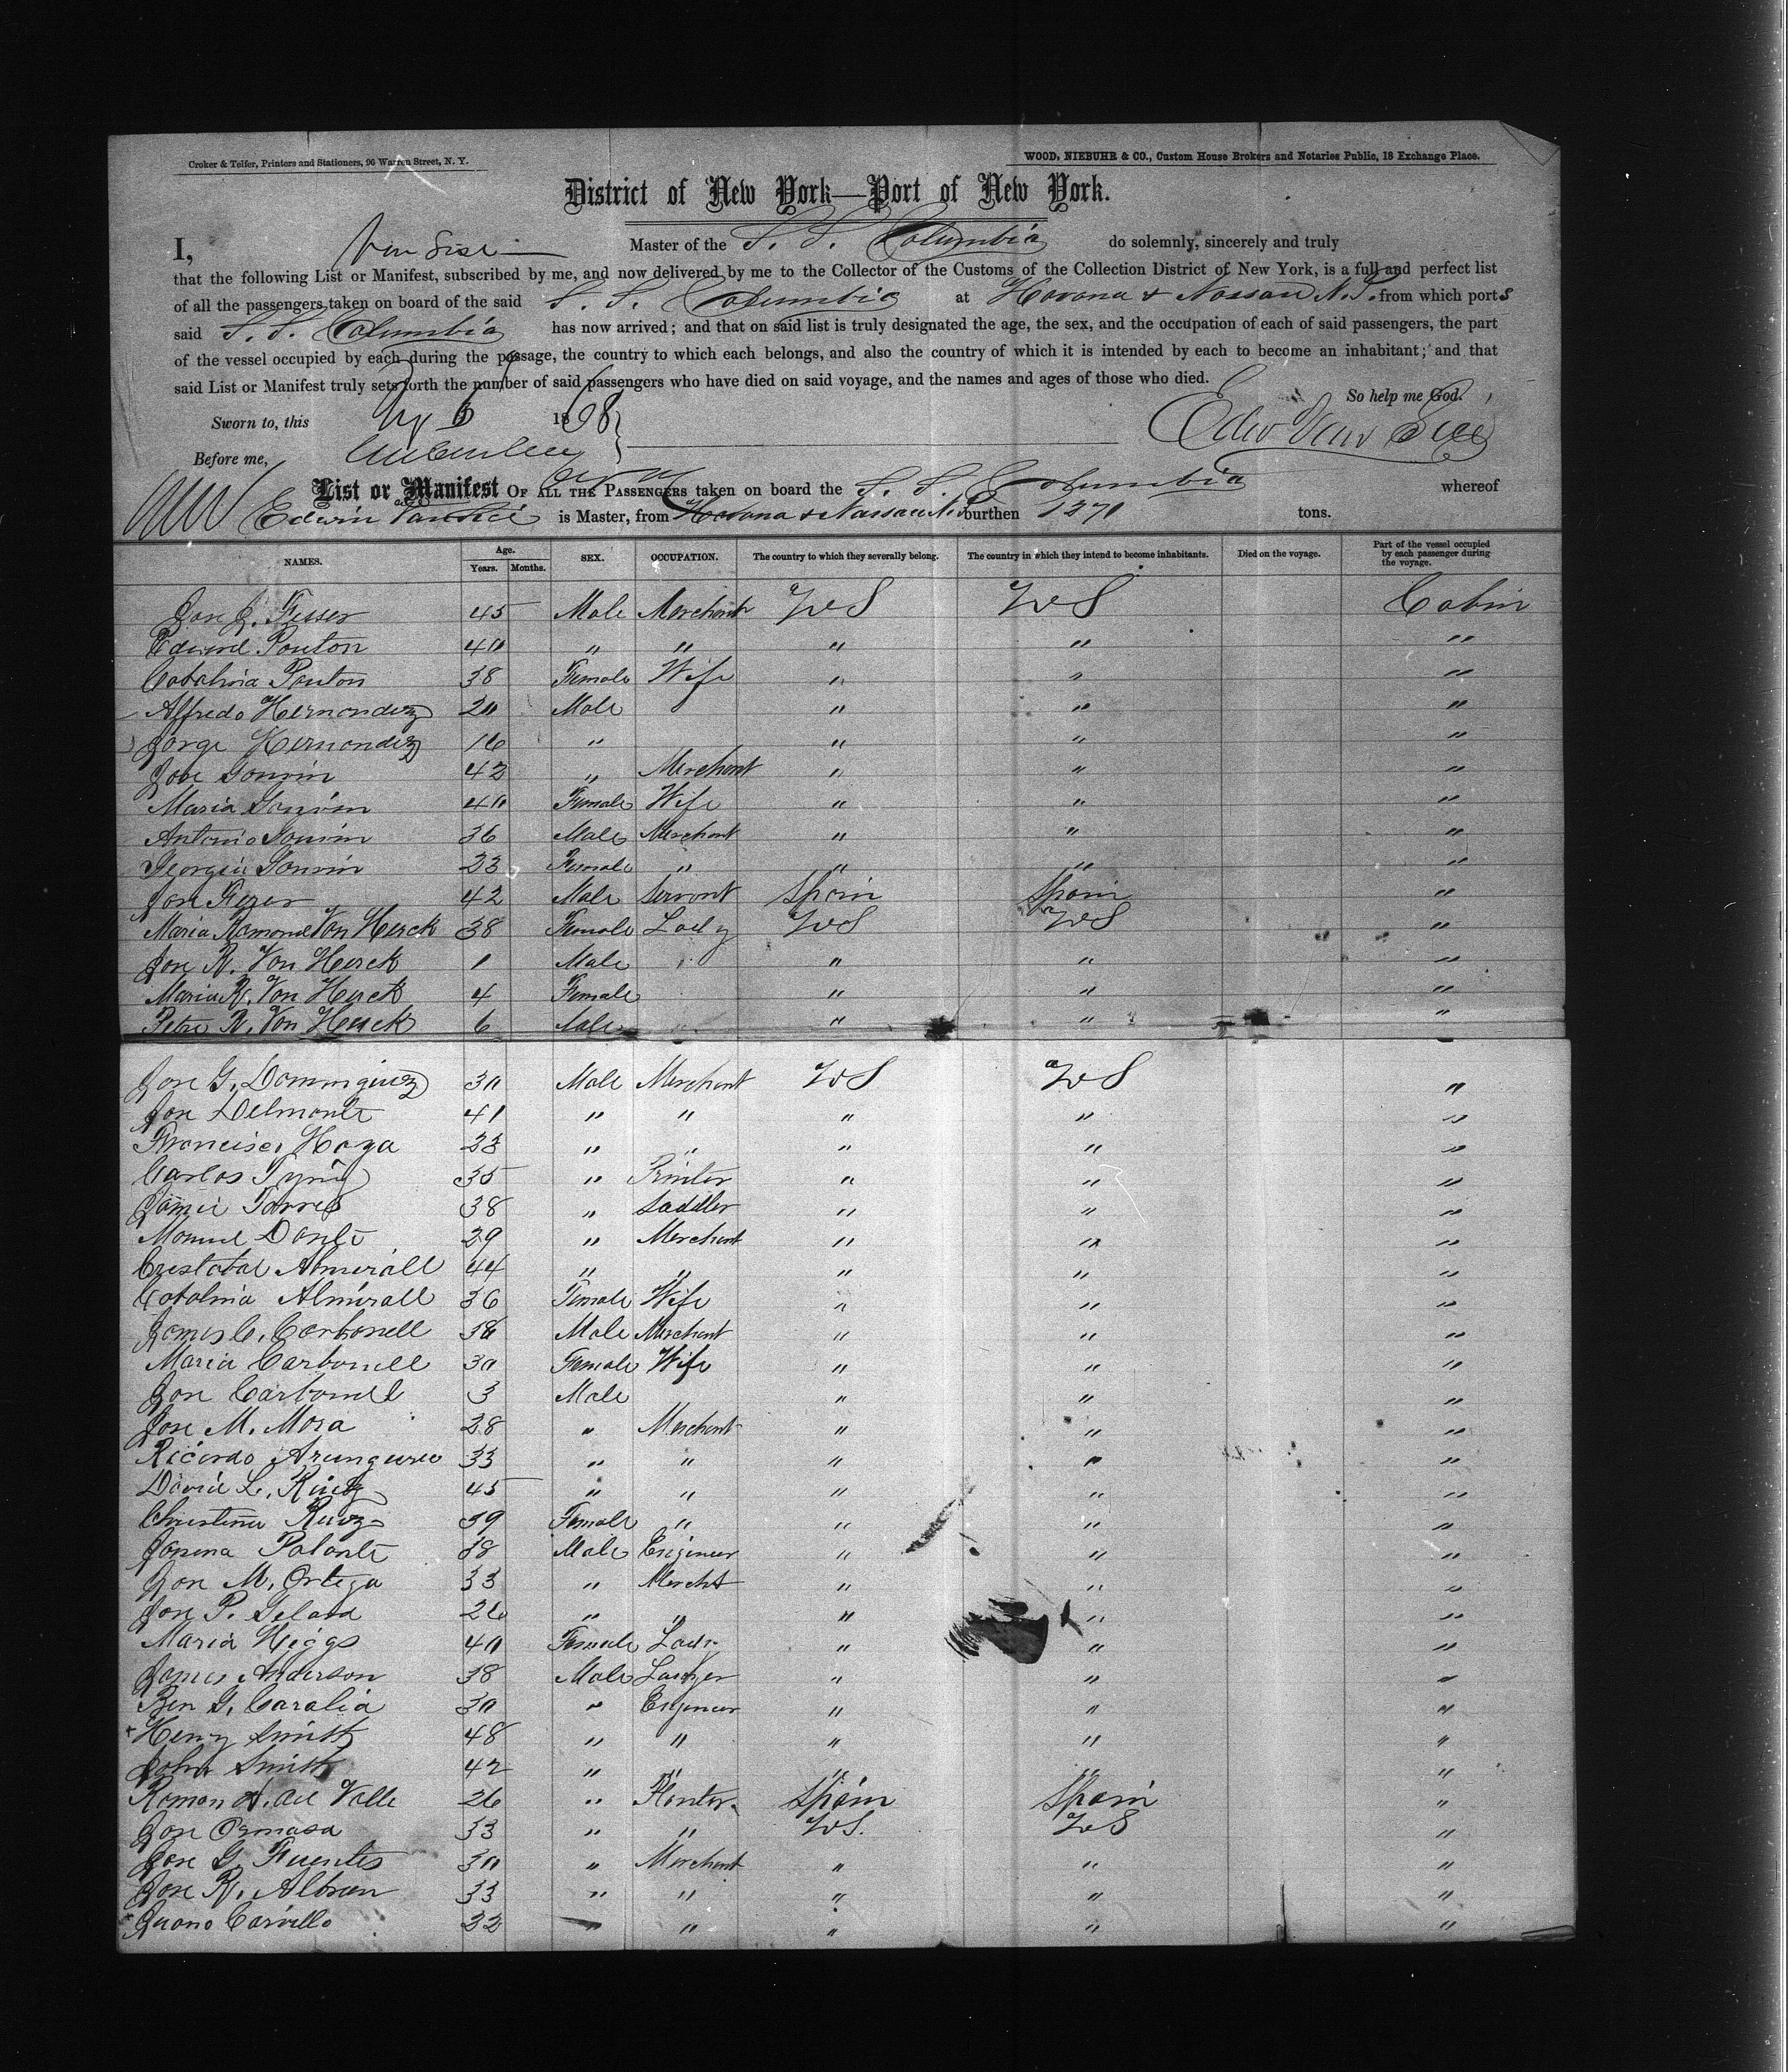 Croker & Telfer, Printers and Stationers, 96 Warren Street, N. Y.
WOOD, NIEBUHR & CO., Custom House Brokers and Notaries Public, 18 Exchange Place.
District of New York—Port of New York.
I, Van Sice Master of the S. S. Columbia do solemnly, sincerely and truly
that the following List or Manifest, subscribed by me, and now delivered by me to the Collector of the Customs of the Collection District of New York, is a full and perfect list
of all the passengers taken on board of the said S. S. Columbia at Havana & Nassau N.P. from which ports
said S. S. Columbia has now arrived; and that on said list is truly designated the age, the sex, and the occupation of each of said passengers, the part
of the vessel occupied by each during the passage, the country to which each belongs, and also the country of which it is intended by each to become an inhabitant; and that
said List or Manifest truly sets forth the number of said passengers who have died on said voyage, and the names and ages of those who died.
So help me God.
Sworn to, this 1868
Edw Van Sice
Before me,
List or Manifest OF ALL THE PASSENGERS taken on board the S. S. Columbia whereof
Edwin Van Sice is Master, from Havana & Nassau N.P. burthen 1371 tons.
NAMES. Age. Years. Months. SEX. OCCUPATION. The country to which they severally belong. The country in which they intend to become inhabitants. Died on the voyage. Part of the vessel occupied by each passenger during the voyage.
Jose J. Fesser 45 Male Merchant US US Cabin
Edward Pouton 40 " " " " "
Catalina Pouton 38 Female Wife " " "
Alfredo Hernandez 20 Male " " "
Jorge Hernandez 16 " " " "
Jose 42 " Merchant " " "
Maria 40 Female Wife " " "
Antonio 36 Male Merchant " " "
Georgia 23 Female " " " "
Jose 42 Male Servant Spain Spain "
Maria Ramona Von Herck 38 Female Lady US US "
Jose R. Von Herck 1 Male " " "
Maria R. Von Herck 4 Female " " "
Petre R. Von Herck 6 Male " " "
Jose G. Dominguez 30 Male Merchant US US "
Jose Delmonte 41 " " " " "
Francisco Haya 23 " " " " "
Carlos 35 " Printer " " "
Jamie Torres 38 " Saddler " " "
Manuel 29 " Merchant " " "
Cristobal Almirall 44 " " " " "
Catalina Almirall 36 Female Wife " " "
James C. Carbonell 36 Male Merchant " " "
Maria Carbonell 30 Female Wife " " "
Jose Carbonell 3 Male " " "
Jose M. Mora 28 " Merchant " " "
Ricardo 33 " " " " "
David L. Ruiz 45 " " " " "
Christina Ruiz 39 Female " " " "
Palonte 38 Male Engineer " " "
Jose M. Ortega 33 " Mercht " " "
Jose P. 26 " " " " "
Maria Higgs 40 Female Lady " " "
James Anderson 38 Male Lawyer " " "
Ben G. Caralia 30 " Engineer " " "
Henry Smith 48 " " " " "
John Smith 42 " " " " "
Ramon A. del Valle 26 " Planter Spain Spain "
Jose Ormasa 33 " " US. US "
Jose G. Fuentes 30 " Merchant " " "
Jose R. Albran 33 " " " " "
Juana Carvillo 32 " " " " "